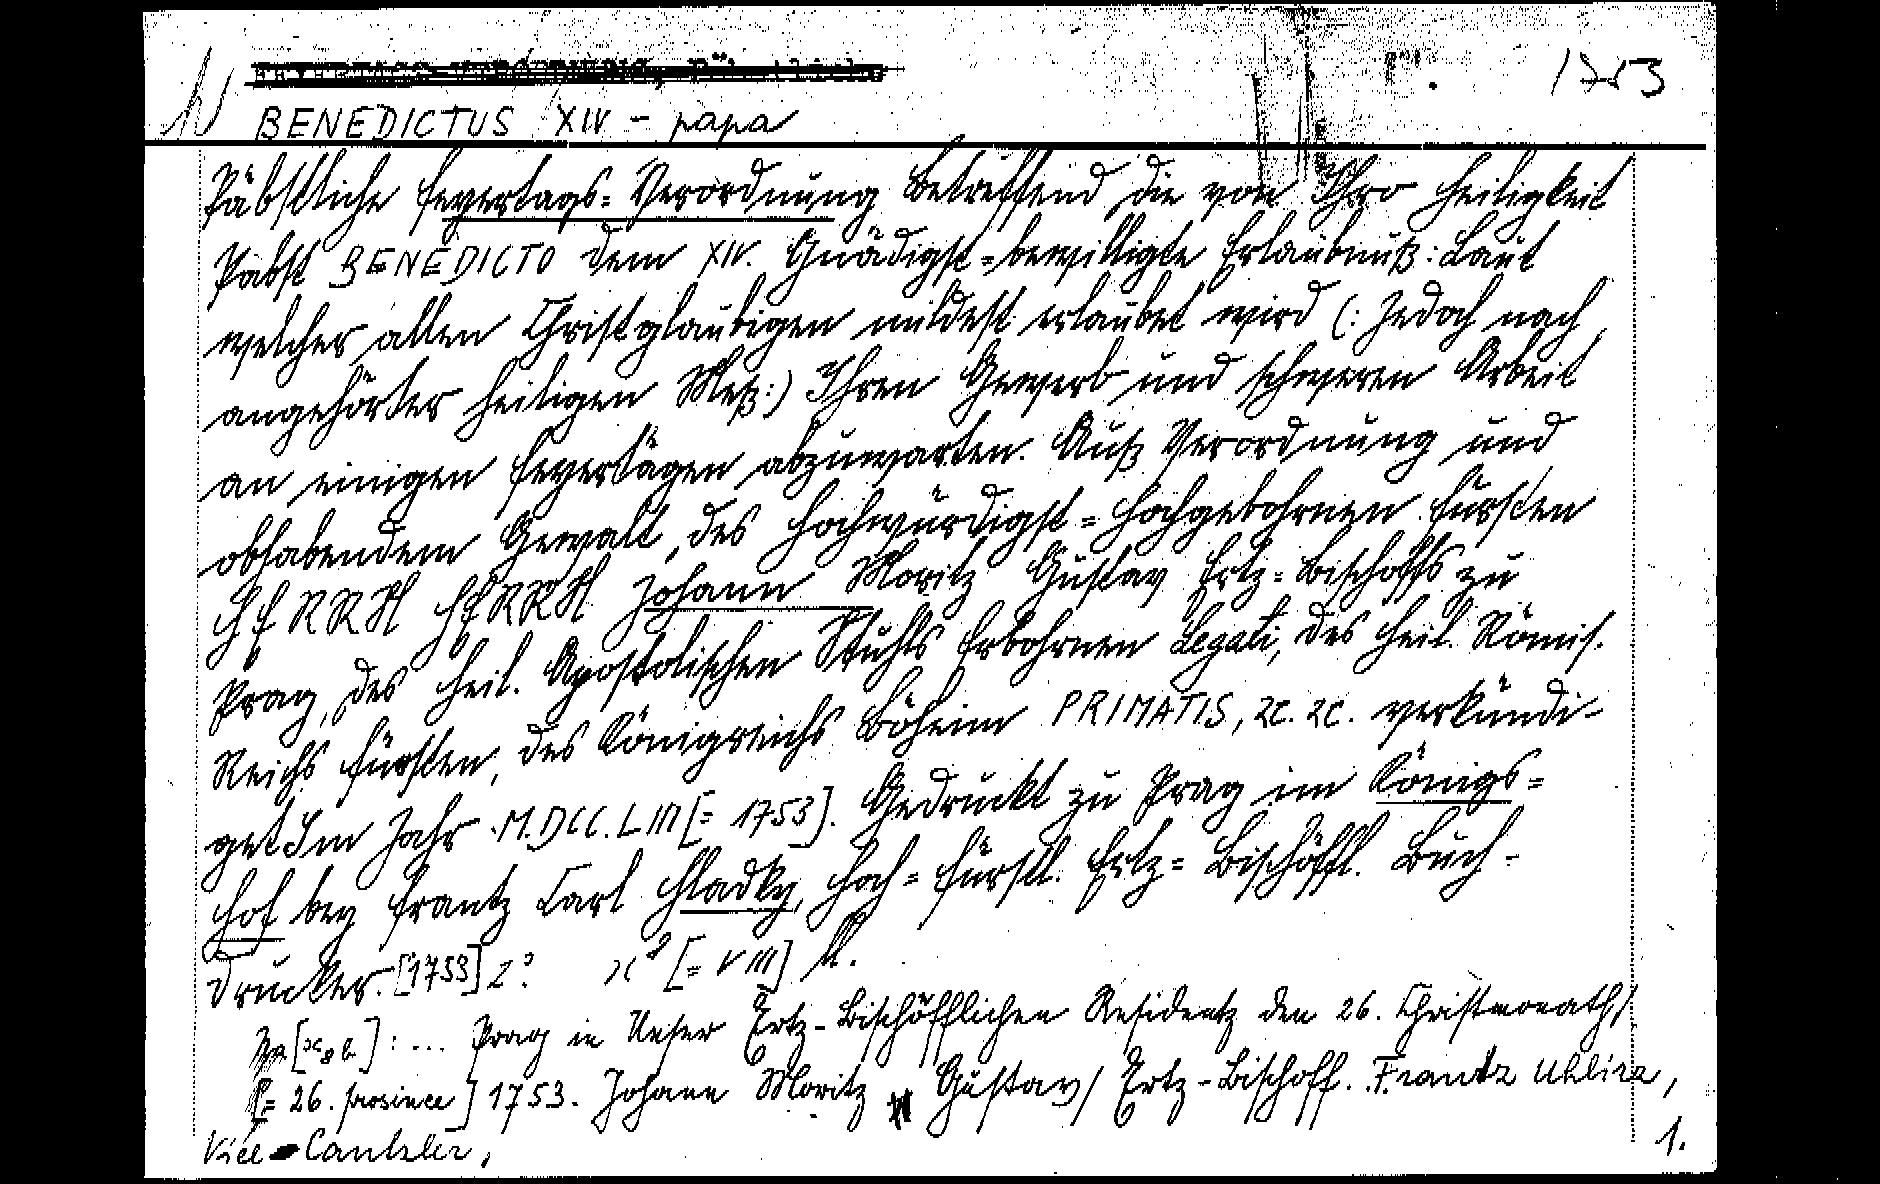 1753
BENEDICTUS XIV - papa
Päbstliche Feyertags=Verordnung Betreffend die von Ihro Heiligkeit
Pabst BENEDICTO dem XIV. Gnädigst=bewilligte Erlaubnuß: Laut
welcher allen Christglaubigen mildest erlaubet wird (: Jedoch nach
angehörter heiligen Meß:) Ihren Gewerb und schweren Arbeit
an einigen Feyertägen abzuwarten. Auß Verordnung und
obhabendem Gewalt, des Hochwürdigst=Hochgebohrnen Fürsten
HERRN HERRN Johann Moritz Gustav Ertz=Bischoffs zu
Prag, des Heil. Apostolischen Stuhls Erbohrnen Legati, des Heil. Römis.
Reichs Fürsten, des Königreichs Böheim PRIMATIS, 2c. 2c. verkündi-
get Im Jahr .M.DCC.LIII [= 1753]. Gedruckt zu Prag im Königs=
Hof bey Frantz Carl Hladky, Hoch=Fürstl. Ertz=Bischöffl. Buch-
drucker. [1753] 2°
[= VIII]
: ... Prag in Unser Ertz-Bischöfflichen Residentz den 26. Christmonath/
[= 26. prosince] 1753. Johann Moritz Gustav/ Ertz-Bischoff. Frantz Uhlirz,
Vice-Cantzler,
1.